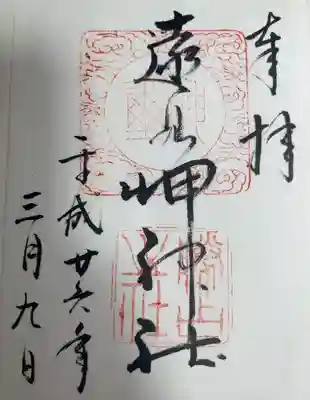 奉拝
遠見岬神社
平成廿六年
三月九日